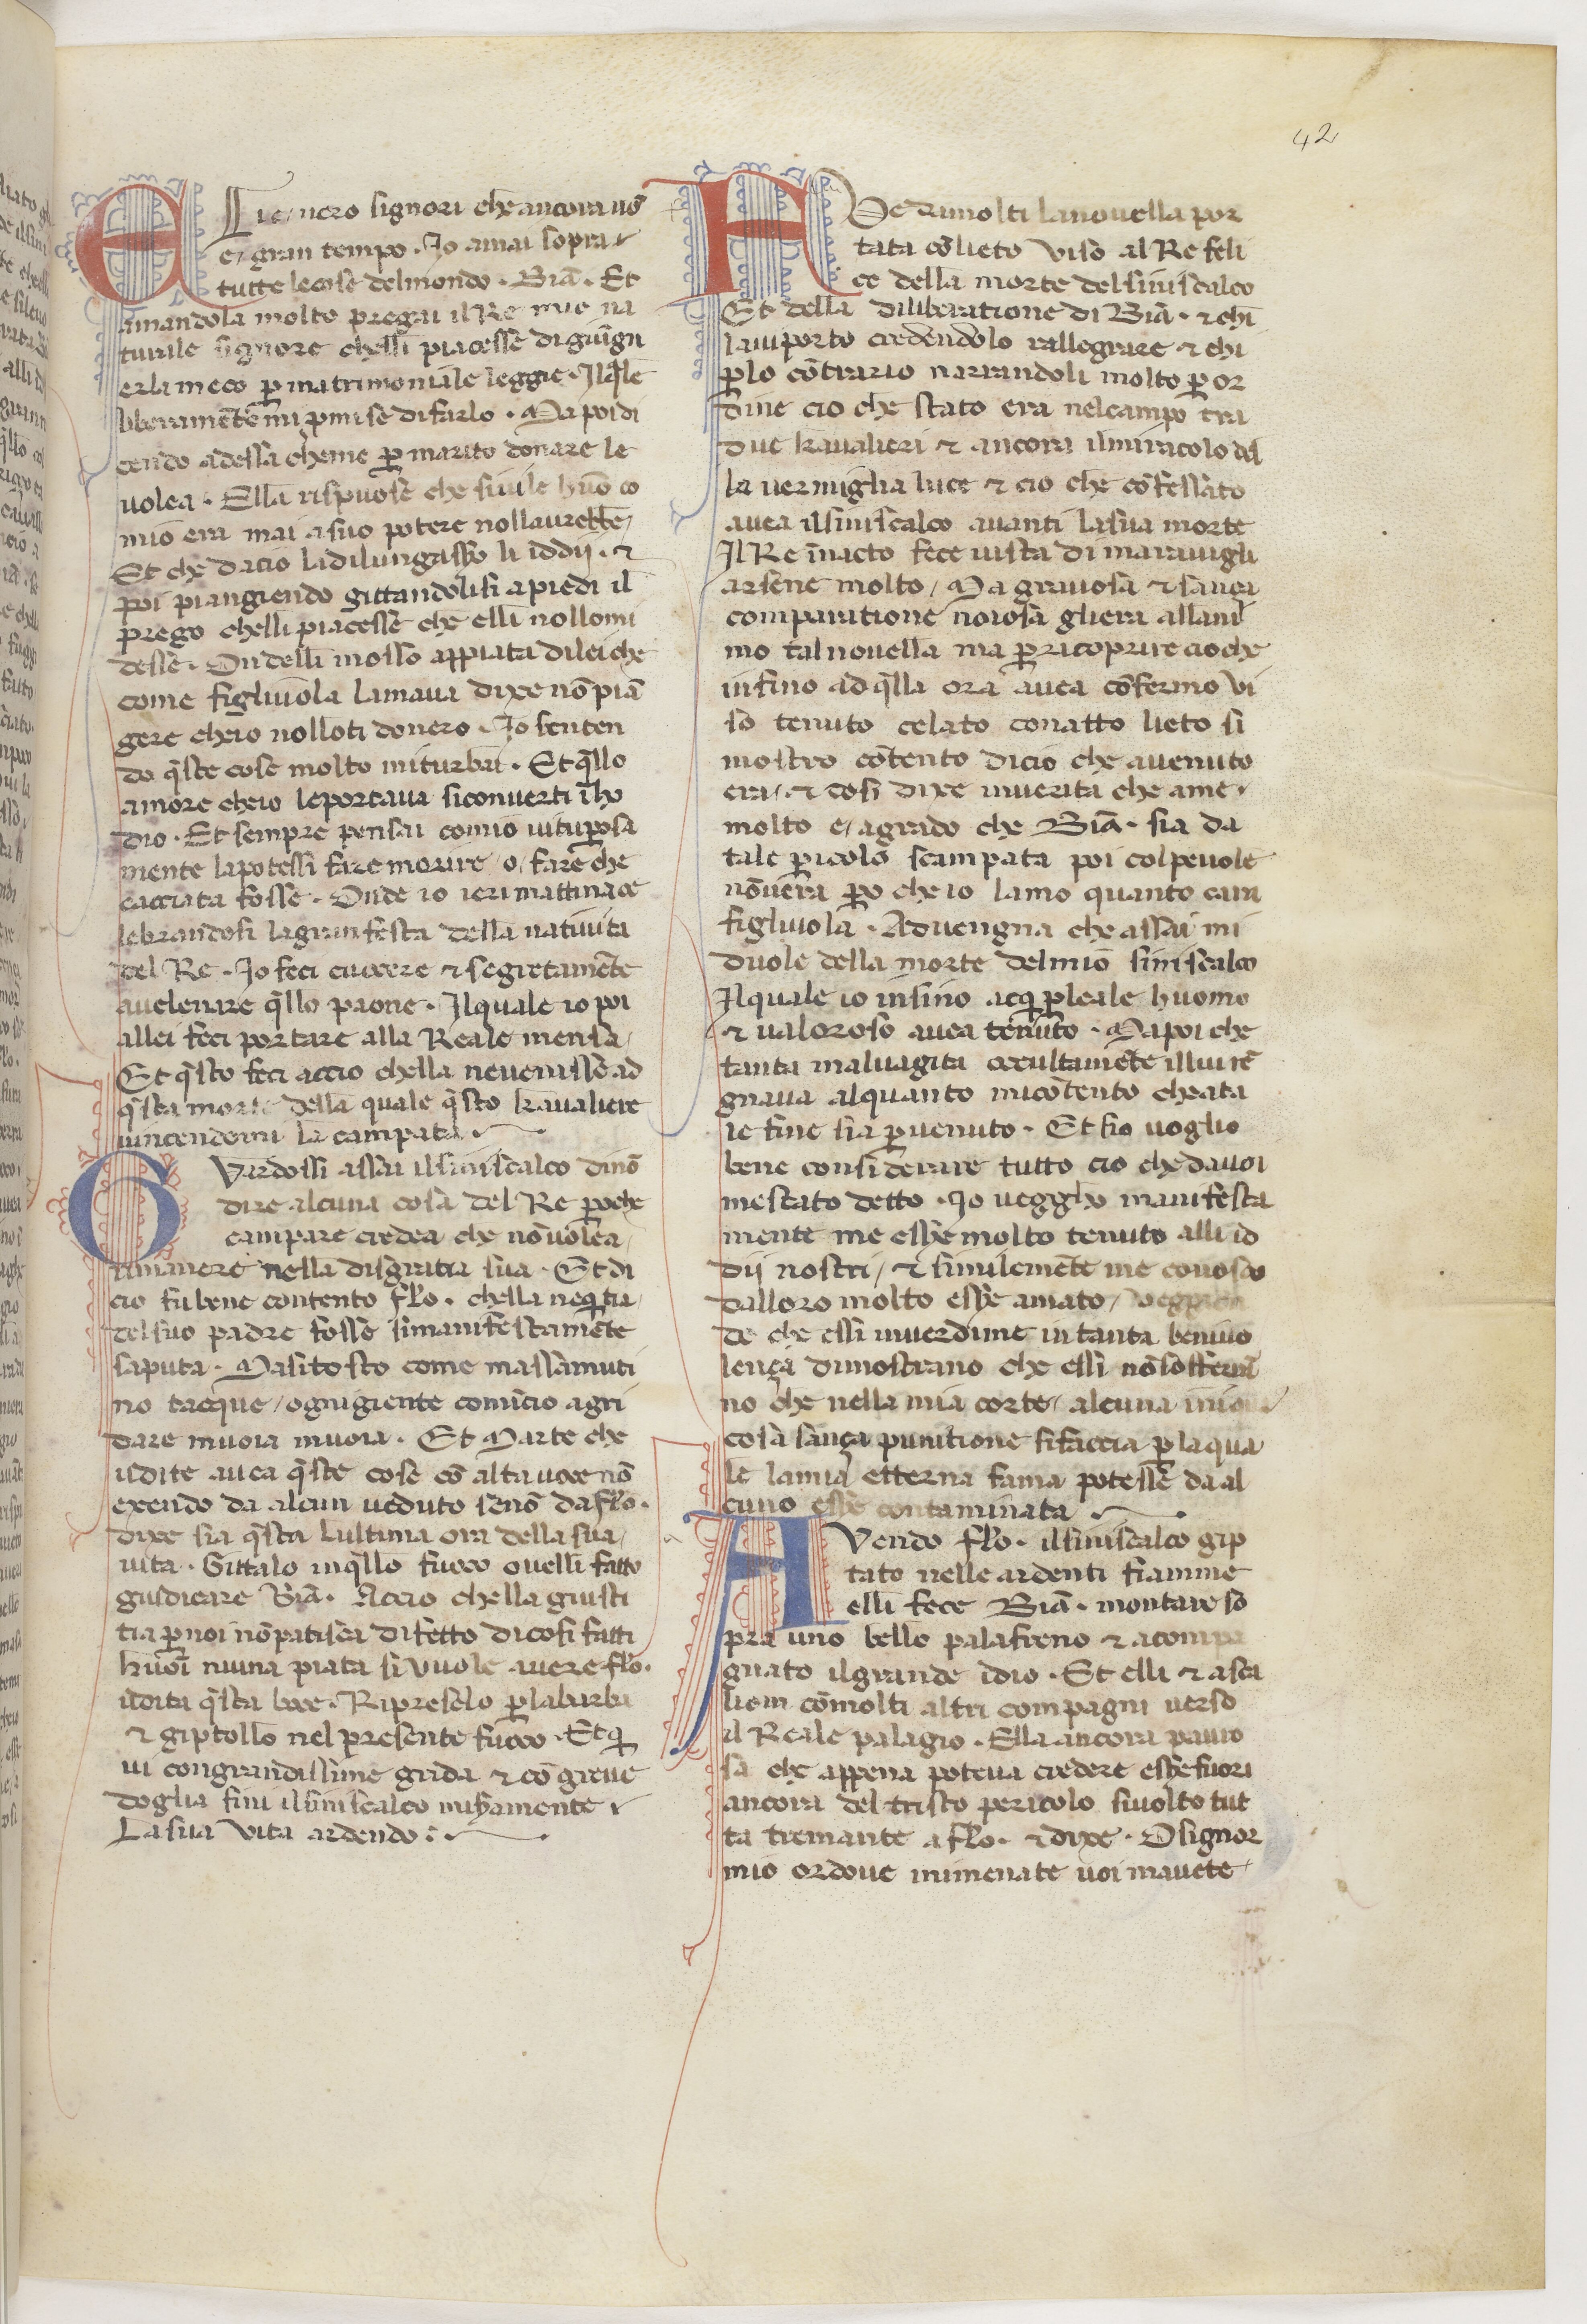 42
ELLi e, uero signori che ancora nō
e, gran tempo. Jo amai sopra
tutte le cose del mondo. Biā. Et
amandola molto pregai il Re mio na
turale signore chelli piacesse di giūgn
erla meco ꝑ matrimoniale leggie. Jlq̄le
liberamēte mi ꝓmise di farlo. Ma poi di
cendo adessa che me ꝑ marito donare le
volea. Ella rispuose che simile huō co
mio era mai a suo potere nollaurebbe,
Et che dacio la dilungasso li iddij. ⁊
poi piangiendo gittandolisi apiedi il
prego chelli piacesse che elli nollomi
desse. Ondelli mosso appiata di lei che
come figliuola lamaua dixe nō piā
gere cheio nolloti donero. Jo senten
do q̄ste cose molto miturbai. Et q̄llo
amore cheio le portaua si conuerti ī hō
dio. Et sempre pensai comio uituꝑosa
mente la potessi fare morire, o, fare che
cacciata fosse. Onde io ieri mattina ce
lebrandosi la gran festa della natiuita
del Re. Jo feci cuocere ⁊ segretamēte
auelenare q̄llo paone. Jlquale io poi
allei feci portare alla Reale mensa,
Et q̄sto feci accio chella ne uenisse ad
q̄sta morte della quale q̄sto kaualiere
uincendomi la campata.
GVardossi assai il siniscalco di nō
dire alcuna cosa del Re ꝑoche
campare credea che nō uolea,
rimanere nella disgratia sua. Et di
cio fu bene contento flo. chella neq̄tia
del suo padre fosse si manifestamēte
saputa. Ma si tosto come massamuti
no tacque, ogni giente comīcio agri
dare muoia muoia. Et Marte che
udite auea q̄ste cose cō alta uoce nō
exendo da alcun ueduto senō da flo.
dixe sia q̄sta lultima ora della sua,
uita. Gittalo in q̄llo fuoco ouelli fatto
giudicare Biā. Accio chella giusti
tia ꝑ noi nō patisca difetto di cosi fatti
huoī niuna piata si vuole auere flo.
udita q̄sta boce. Ripreselo ꝑ la barba
⁊ giptollo nel presente fuoco. Et q̄
ui con grandissime grida ⁊ cō greue
doglia fini il siniscalco
La sua vita ardendo:
FVe da molti la nouella por
tata cō lieto viso al Re feli
ce della morte del siniscalco
Et della diliberatione di Biā. ⁊ chi
laui porto credendolo rallegrare ⁊ chi
ꝑ lo cōtrario narrandoli molto ꝑ or
dine cio che stato era nel campo tra
due kaualieri ⁊ ancora il miracolo del
la uermiglia luce ⁊ cio che cōfessato
auea il siniscalco auanti la sua morte
Jl Re īnacto fece uista di marauigli
arsene molto, Ma grauosa ⁊ sança
comparatione noiosa gliera allani
mo tal nouella ma ꝑ ricoprire cio che
infino ad q̄lla ora auea cō fermo vi
so tenuto celato conatto lieto si
mostro cōtento di cio che auenuto
era, ⁊ cosi dixe inuerita che ame
molto e, agrado che Biā. sia da
tale ꝑicolo scampata poi colpeuole
nō uera ꝑo che io lamo quanto cara
figliuola. Aduengna che assai mi
duole della morte del mio siniscalco
Jlquale io insino acq̄ ꝑ leale huomo
⁊ ualoroso auea tenuto. Ma poi che
tanta maluagita occultamēte illui re
gnaua alquanto mi cōtento che ata
le fine sia ꝑuenuto. Et sio uoglio
bene considerare tutto cio che da uoi
mestato detto. Jo ueggho manifesta
mente me essere molto tenuto alli id
dij nostri, ⁊ similemēte me conosco
dalloro molto essere amato,
de che essi inuerdime in tanta beniuo
lença dimostrano che elli nō sofferrā
no che nella mia corte, alcuna
cosa sança punitione si faccia ꝑ la qua
le lamia etterna fama potesse da al
cuno essere contaminata
AVendo flo. il siniscalco gip
tato nelle ardenti fiamme
elli fece Biā. montare so
pra uno bello palafreno ⁊ acompa
gnato il grande idio. Et elli ⁊ asca
lion cō molti altri compagni uerso
il Reale palagio. Ella ancora pauro
sa che appena poteua credere essere fuori
ancora del tristo pericolo si uolto tut
ta tremante a flo. ⁊ dixe. O signor
mio or doue mi menate uoi mauete